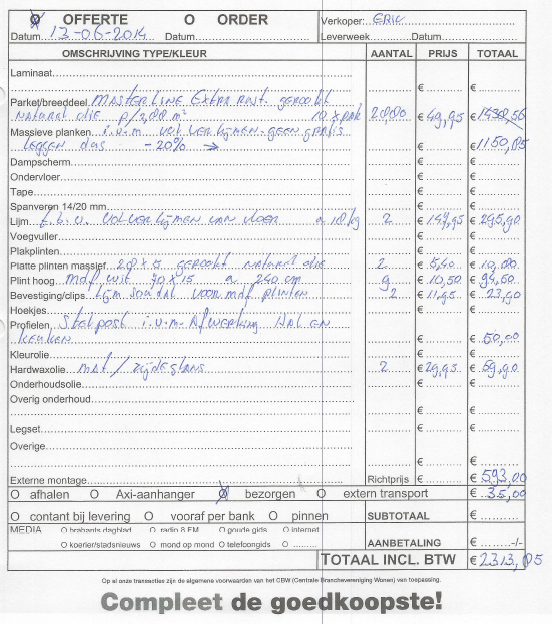 OFFERTE O ORDER Verkoper: ERIC
Datum 13-06-2014 Datum Leverweek Datum
OMSCHRIJVING TYPE/KLEUR AANTAL PRIJS TOTAAL
Laminaat
€ €
Parket/breeddeel MASTERLINE EXTRA RUST. GEROOKT
NATURAL OLIE P/2,88 m² 10 x pak 28,80 € 49,95 € 1438,56
Massieve planken i.v.m. volverlijmen - geen gratis
leggen dus -20% → € 1150,85
Dampscherm € €
Ondervloer € €
Tape € €
Spanveren 14/20 mm € €
Lijm t.b.v. volverlijmen van vloer a 18kg 2 € 147,95 € 295,90
Voegvuller € €
Plakplinten € €
Platte plinten massief GEROOKT NATURAL OLIE 2 € 5,40 € 10,80
Plint hoog mdf wit 70 x 15 a 240 cm 9 € 10,50 € 94,50
Bevestiging/clips Lijm voor mdf plinten 2 € 11,95 € 23,90
Hoekjes € €
Profielen Stelpost i.v.m. Afwerking Hal en
keuken € 50,00
Kleurolie € €
Hardwaxolie mat / zijdeglans 2 € 29,95 € 59,90
Onderhoudsolie € €
Overig onderhoud € €
Legset € €
Overige € €
€ €
Externe montage Richtprijs € 593,00
O afhalen O Axi-aanhanger bezorgen O extern transport € 35,00
O contant bij levering O vooraf per bank O pinnen SUBTOTAAL €
MEDIA O brabants dagblad O radio 8 FM O goude gids O internet
O koerier/stadsnieuws O mond op mond O telefoongids O AANBETALING € -/-
TOTAAL INCL. BTW € 2313,85
Op al onze transacties zijn de algemene voorwaarden van het CBW (Centrale Branchevereniging Wonen) van toepassing.
Compleet de goedkoopste!